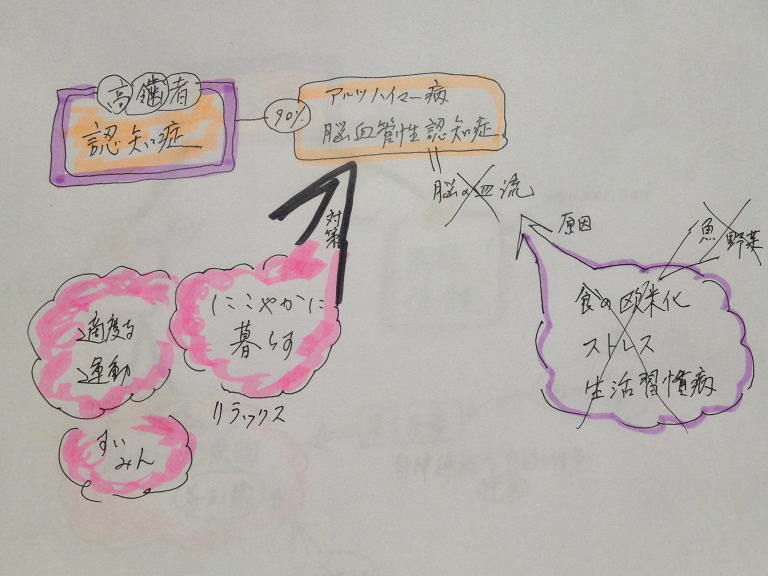 高齢者
認知症
90%
アルツハイマー病
脳血管性認知症
脳の血流
原因
魚
野菜
対策
食の欧米化
ストレス
生活習慣病
にこやかに
暮らす
リラックス
適度な
運動
すい
みん